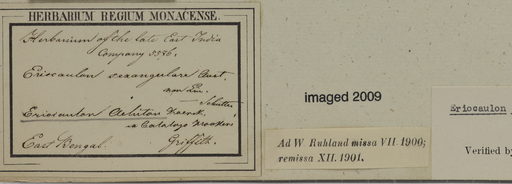 HERBARIUM REGIUM MONACENSE.
Herbarium of the late East India
Company 5576.
Eriocaulon sexangulare Auct
non Lin.
Eriocaulon Koernk.
e Catalogo Hookeri
East Bengal. Griffith.
imaged 2009
Ad W. Ruhland missa VII. 1900;
remissa XII. 1901.
Eriocaulon
Verified by